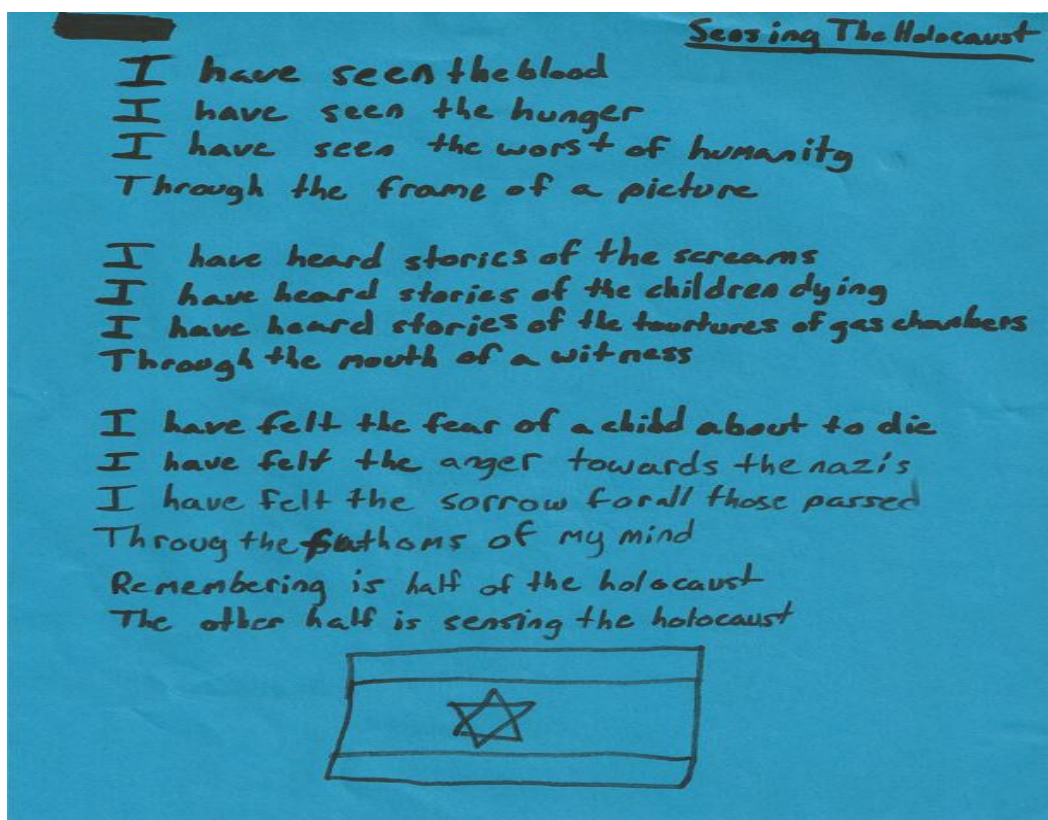 Sensing The Holocaust
I have seen the blood
I have seen the hunger
I have seen the worst of humanity
Through the frame of a picture
I have heard stories of the screams
I have heard stories of the children dying
I have heard stories of the tourtures of gas chambers
Through the mouth of a witness
I have felt the fear of a child about to die
I have felt the anger towards the nazis
I have felt the sorrow for all those passed
Throug the fathoms of my mind
Remembering is half of the holocaust
The other half is sensing the holocaust